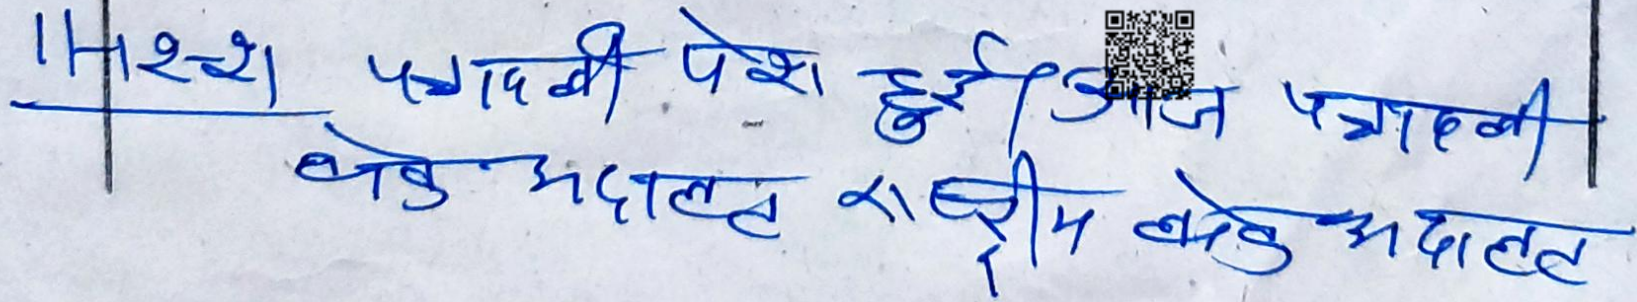 पत्रावली पेश हुई। आज पत्रावली
लोक अदालत राष्ट्रीय लोक अदालत